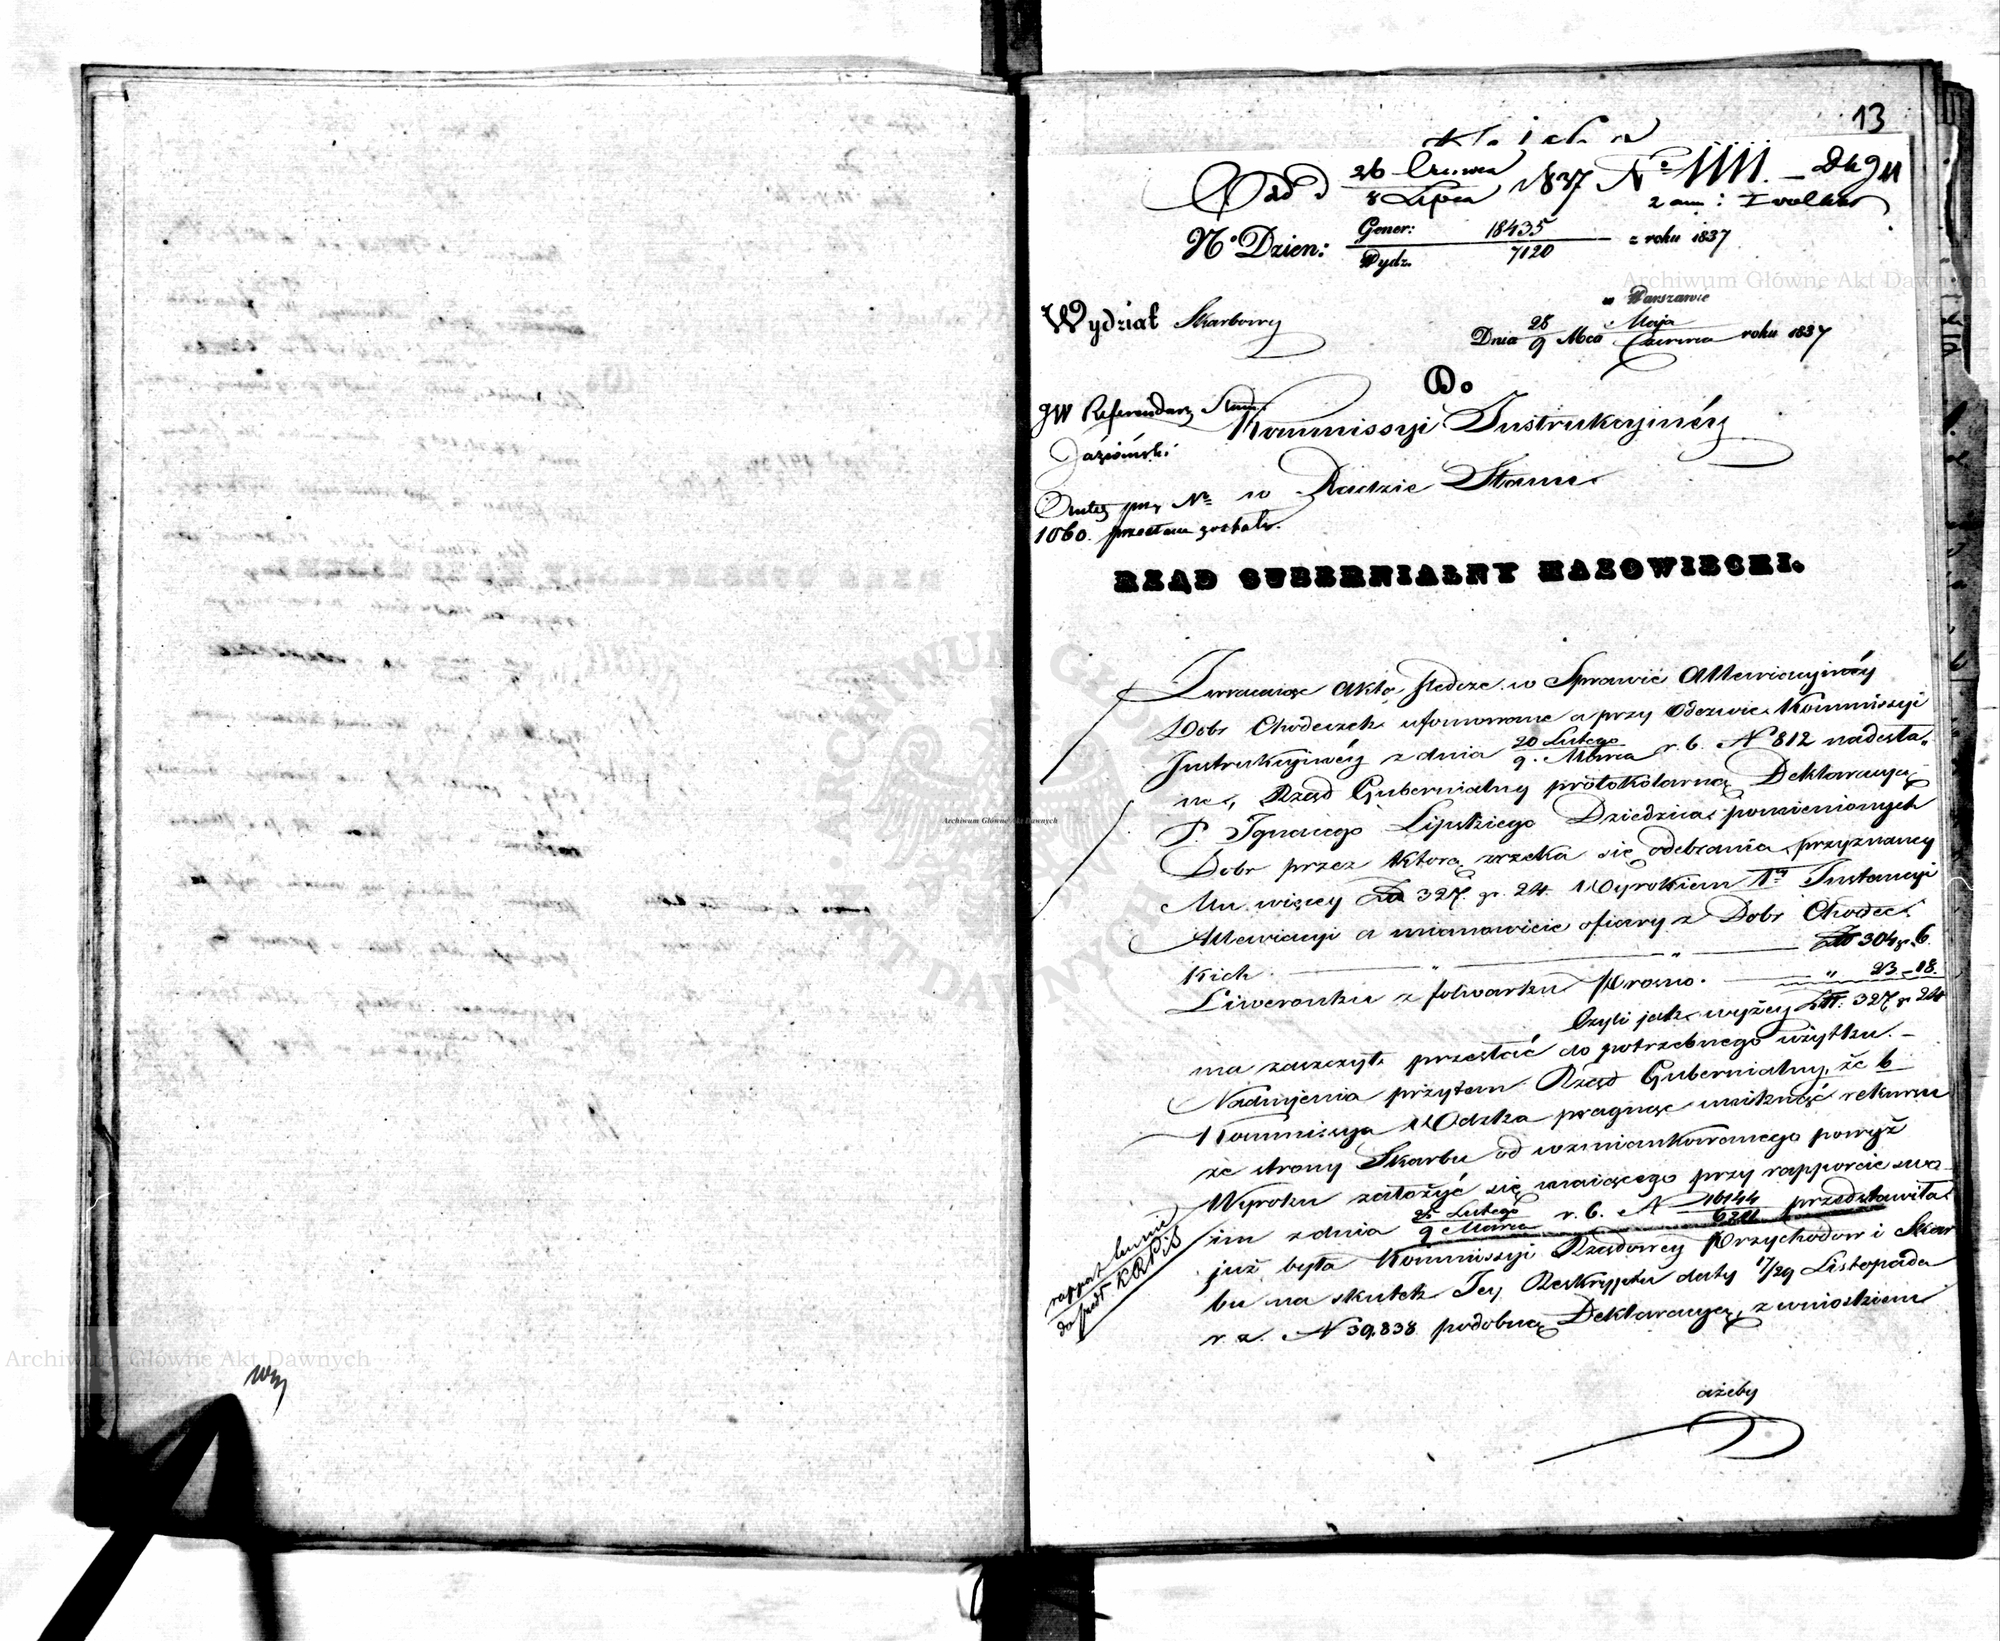 13
Odd 26 Czerwca / 8 Lipca 1837 Nº 1111.
N° Dzien: Gener: 18435 / Wydz. 7120 z roku 1837
w Warszawie
Wydział Skarbowy
Dnia 28 / 9 Mca Maja / Czerwca roku 1837
Do
JW Referendarz Stanu
Kommissyi Instrukcyinéy
w Radzie Stanu
1060. przesłane zostały.
RZĄD GUBERNIALNY MAZOWIECKI.
Zwracaiąc Akta śledcze w Sprawie Allewiacyinéy
Dobr Chodeczek uformowane a przy Odezwie Kommissyi
Instrukcyinéy z dnia 20 Lutego / 9. Marca r. b. N 812 nadesła„
ne, Rząd Gubernialny protokolarną Deklaracyą
P. Ignacego Lipskiego Dziedzica pomienionych
Dobr przez którą zrzeka się odebrania przyznanéy
Mu więcéy Zł 327. gr. 24 Wyrokiem 1éy Instancyi
Allewiacyi a mianowicie ofiary z Dobr Chodec:
kich „ „ Zł 304 gr. 6.
Liwerunku z folwarku Prosno. „ 23 - 18.
Czyli jak wyżéy Zł: 327 gr 24
ma zaszczyt przesłać do potrzebnego użytku. —
Nadmienia przytem Rząd Gubernialny, że b
Kommissya Wdzka pragnąc uniknąć rekursu
ze strony Skarbu od wzmiankowanego powyż
Wyroku założyć się maiącego przy rapporcie swo„
im z dnia 25 Lutego / 9 Marca r. b. N 16144 / 6211 przedstawiła
już była Kommissyi Rządowéy Przychodow i Skar
bu na skutek Jey Reskryptu daty 17/29 Listopada
r. z. N 39,838 podobną Deklaracyą, z wnioskiem
ażeby